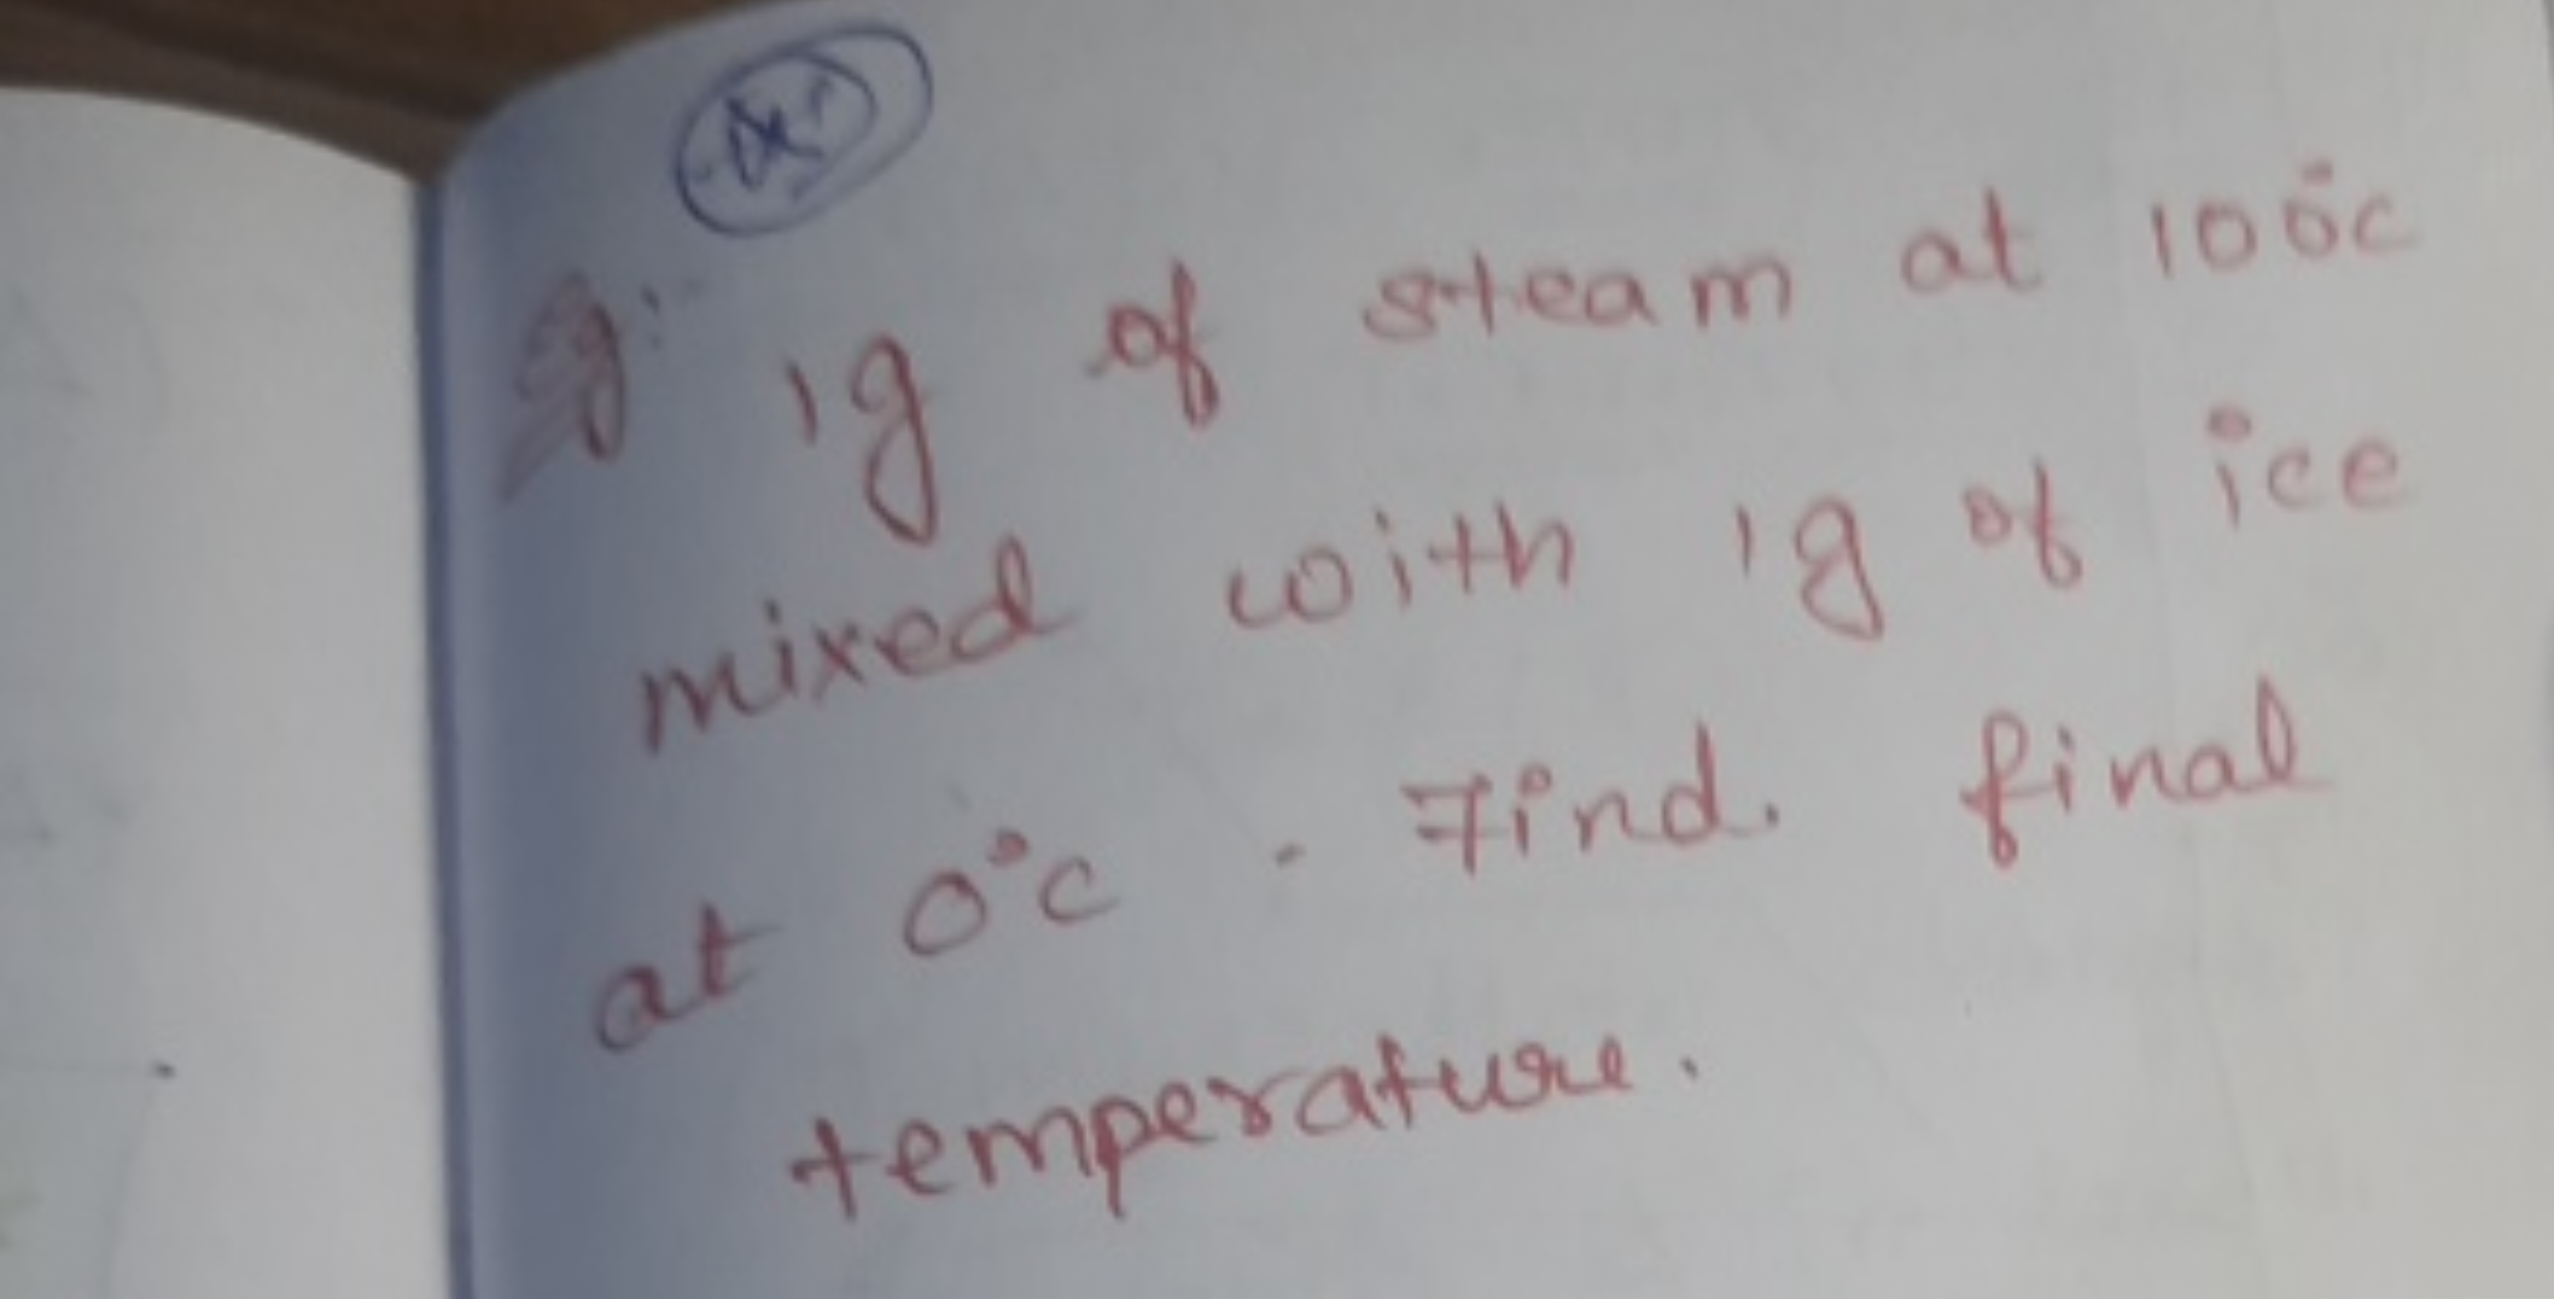 Eg:-
1g of steam at 100°c
mixed with 1g of ice
at 0°c . Find. final
temperature.